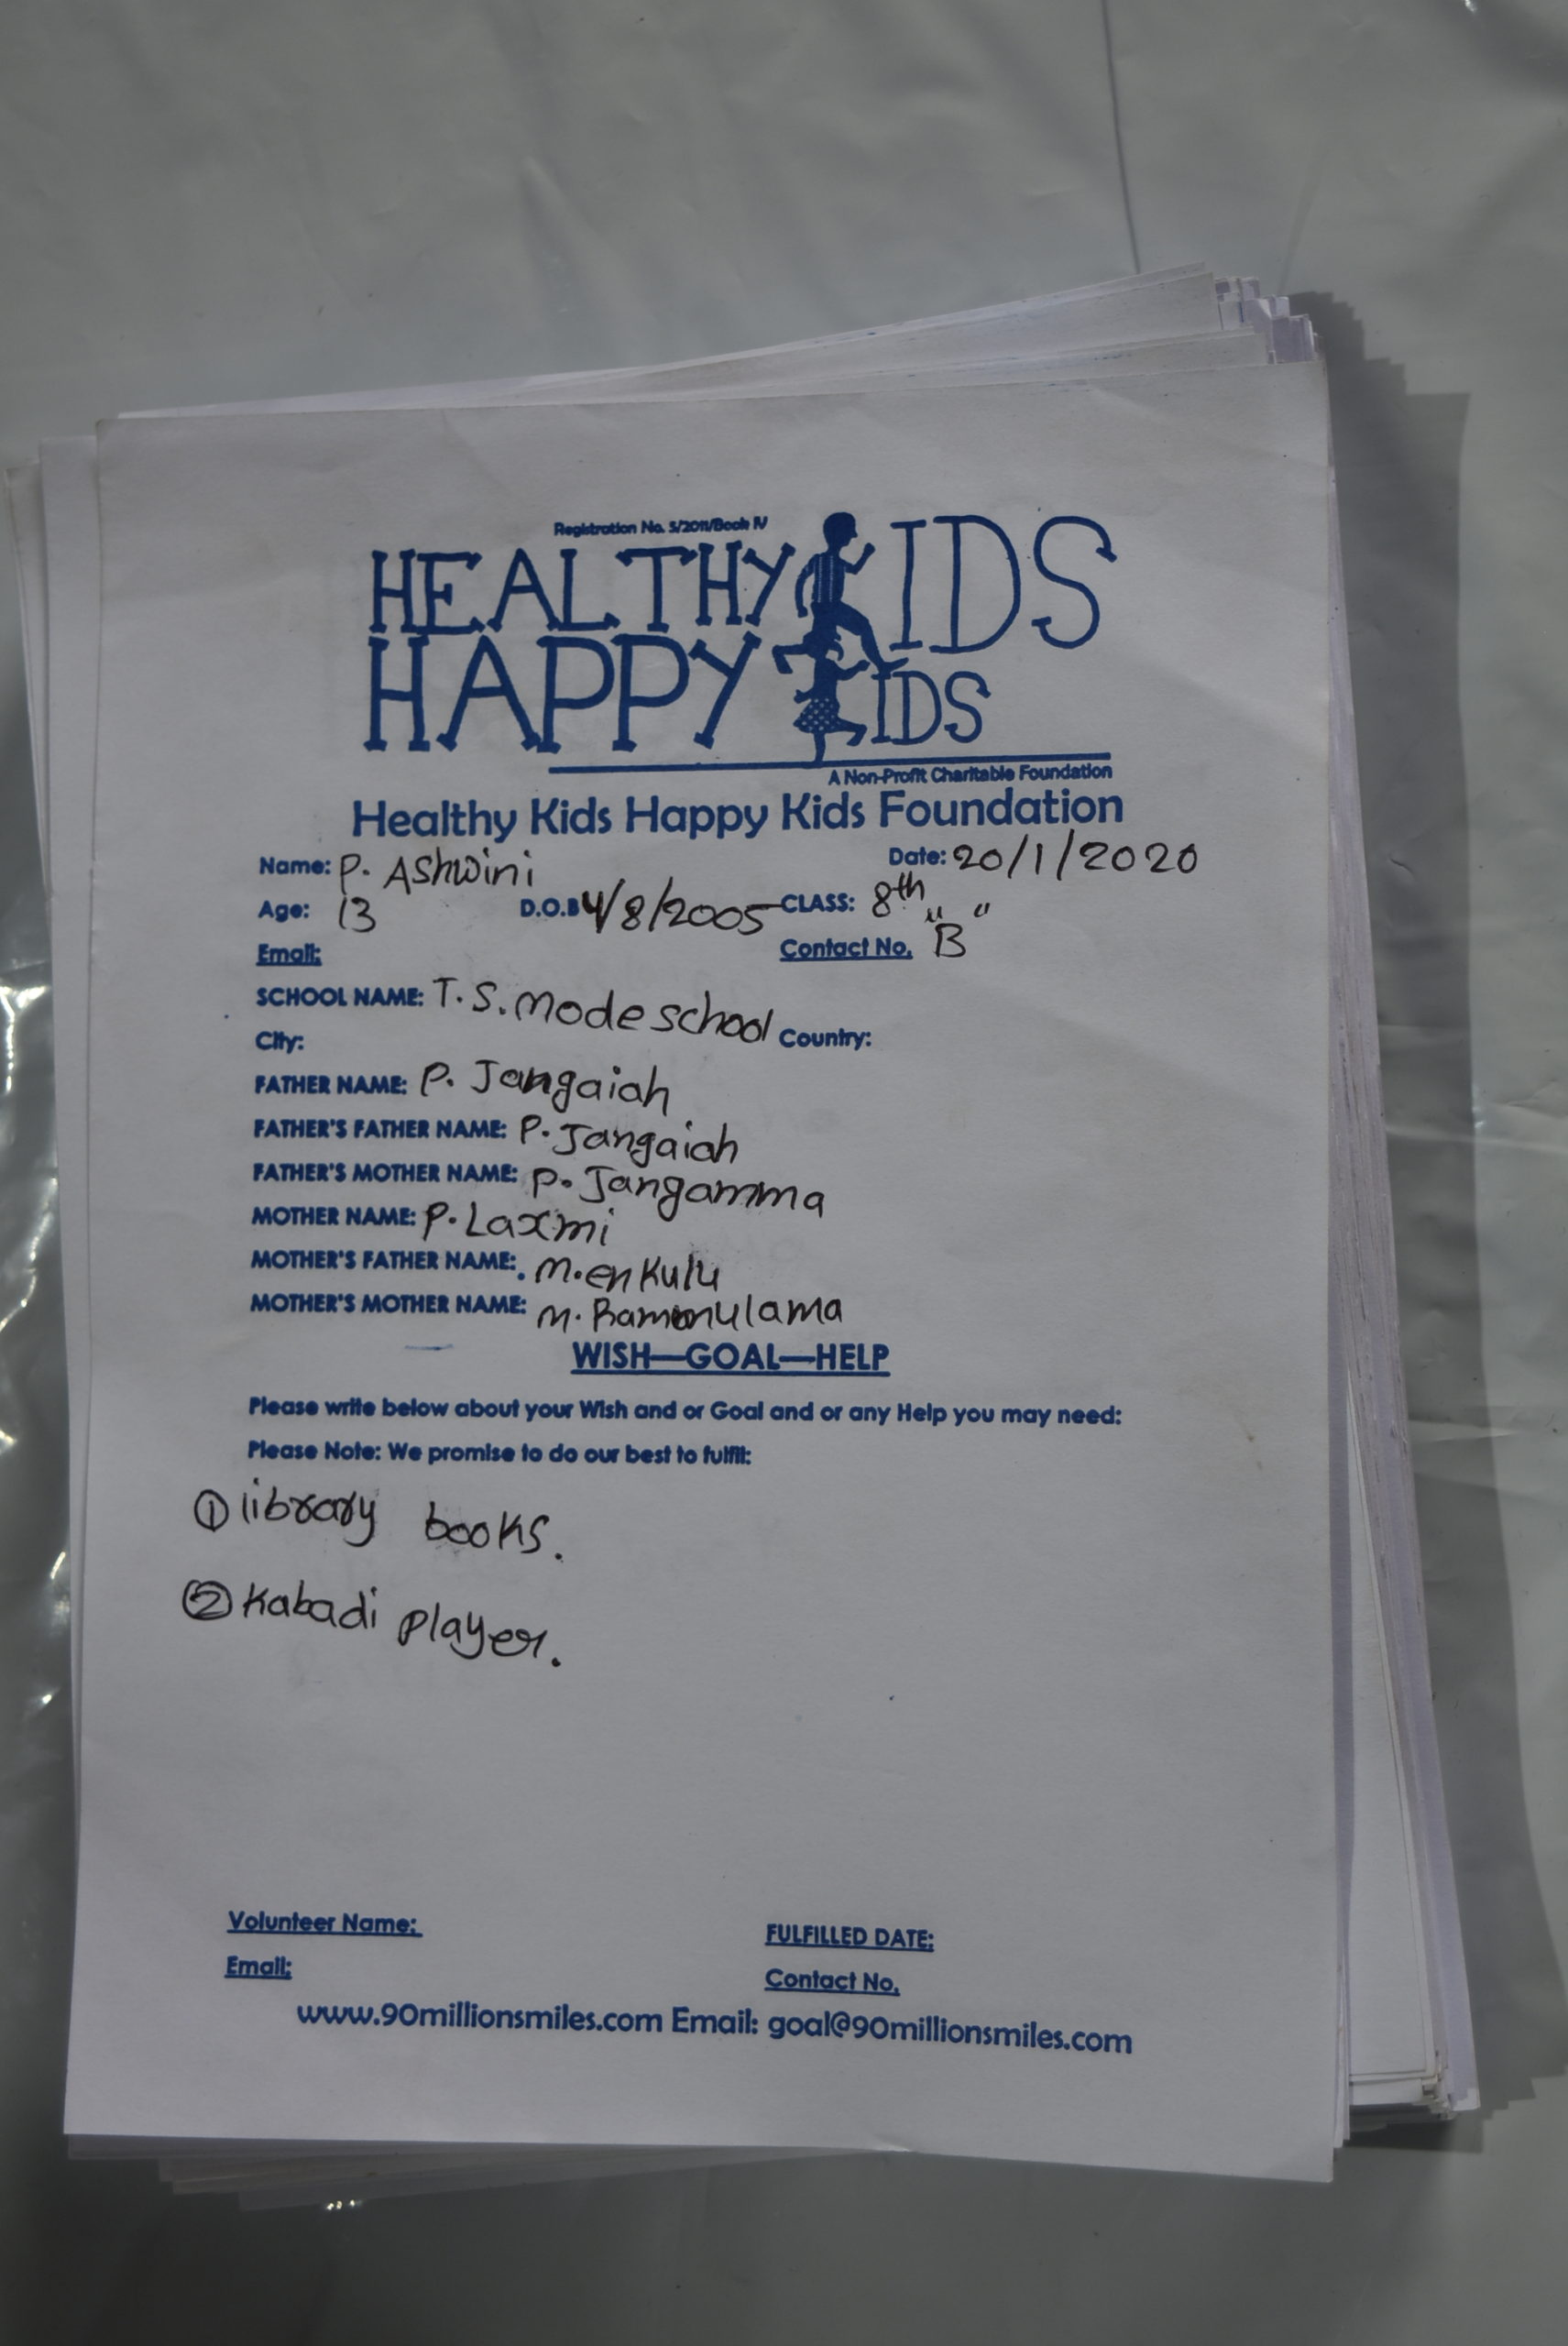 Registration No. 5/2011/Book IV
HEALTHY KIDS
HAPPY KIDS
A Non-Profit Charitable Foundation
Healthy Kids Happy Kids Foundation
Name: P. Ashwini Date: 20/1/2020
Age: 13 D.O.B 4/8/2005 CLASS: 8th
Email: Contact No. "B"
SCHOOL NAME: T.S. mode school
City: Country:
FATHER NAME: P. Jangaiah
FATHER'S FATHER NAME: P. Jangaiah
FATHER'S MOTHER NAME: P. Jangamma
MOTHER NAME: P. Laxmi
MOTHER'S FATHER NAME: M. enkulu
MOTHER'S MOTHER NAME: M.
WISH—GOAL—HELP
Please write below about your Wish and or Goal and or any Help you may need:
Please Note: We promise to do our best to fulfil:
① library books.
② Kabadi player.
Volunteer Name: FULFILLED DATE:
Email: Contact No.
www.90millionsmiles.com Email: goal@90millionsmiles.com